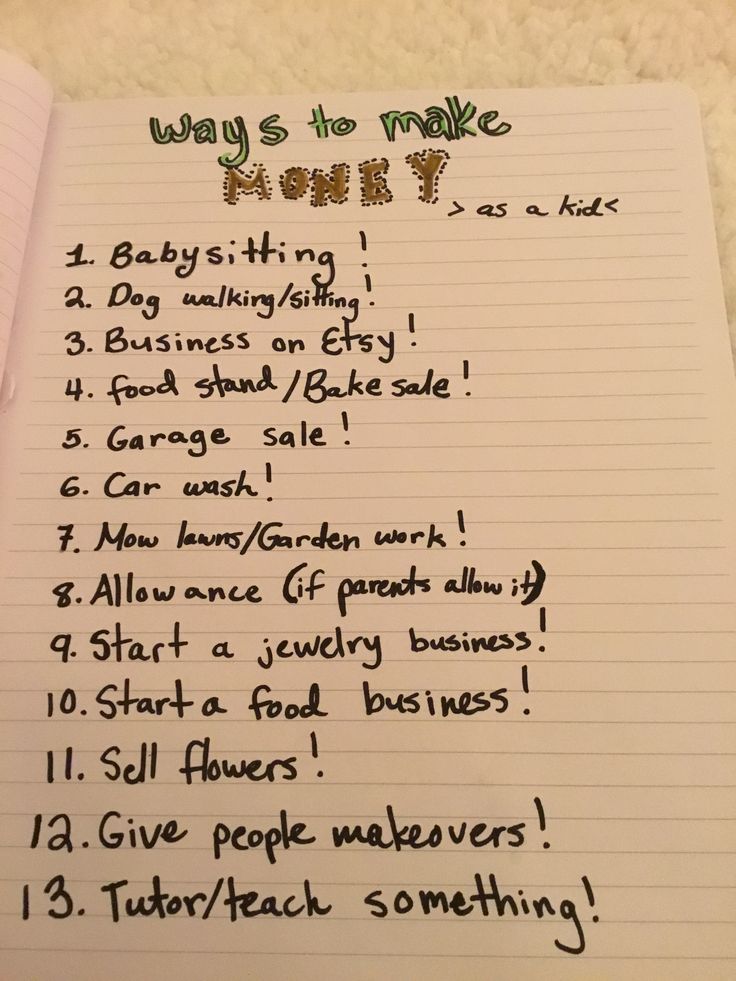 ways to make
MONEY
> as a kid <
1. Babysitting!
2. Dog walking/sitting!
3. Business on Etsy!
4. food stand/Bake sale!
5. Garage sale!
6. Car wash!
7. Mow lawns/Garden work!
8. Allowance (if parents allow it)
9. Start a jewelry business!
10. Start a food business!
11. Sell flowers!
12. Give people makeovers!
13. Tutor/teach something!